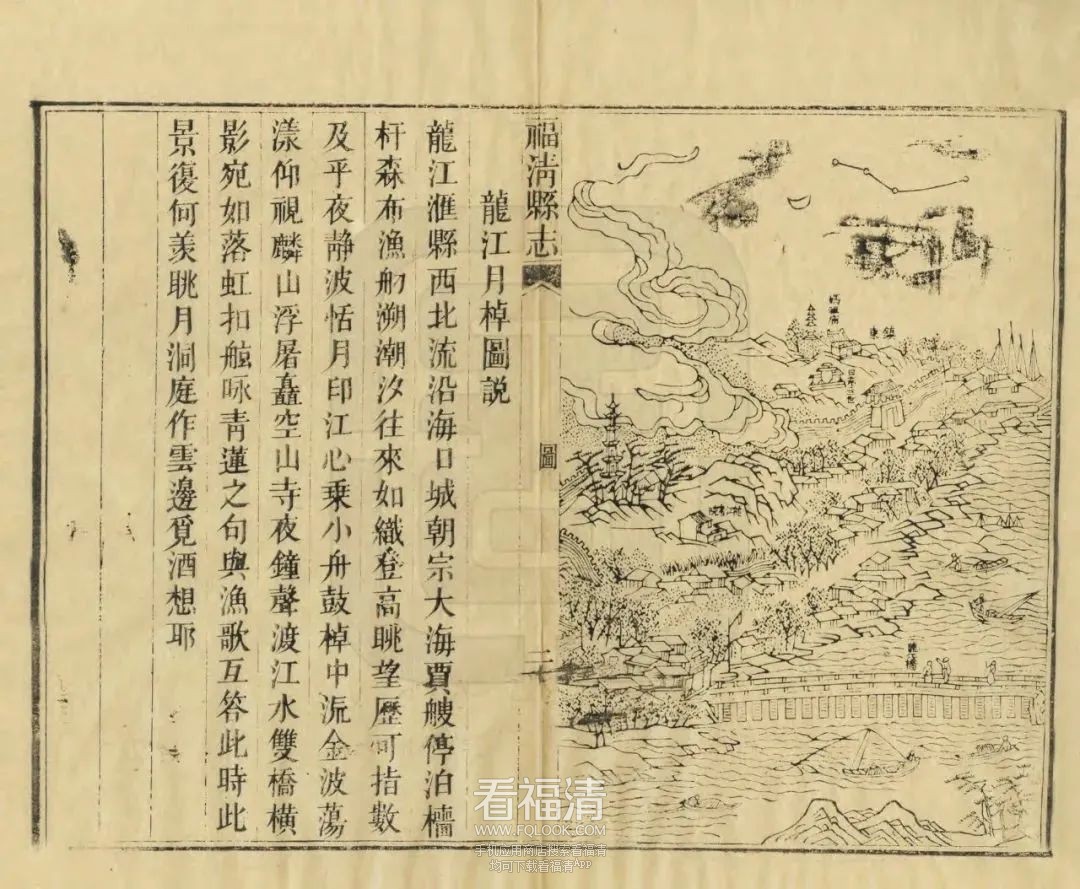 媽祖廟
鎮東
龍江橋
福淸縣志
圖
二
龍江月棹圖説
龍江滙縣西北流沿海口城朝宗大海賈艘停泊檣
杆森布漁舠溯潮汐往來如織登高眺望歷可指數
及乎夜静波恬月印江心乗小舟鼓棹中流金波蕩
漾仰視麟山浮屠矗空山寺夜鐘聲渡江水雙橋橫
影宛如落虹扣舷咏靑蓮之句與漁歌互答此時此
景復何羨眺月洞庭作雲邊覓酒想耶
看福清
WWW.FQLOOK.COM
手机应用商店搜索看福清
均可下载看福清App